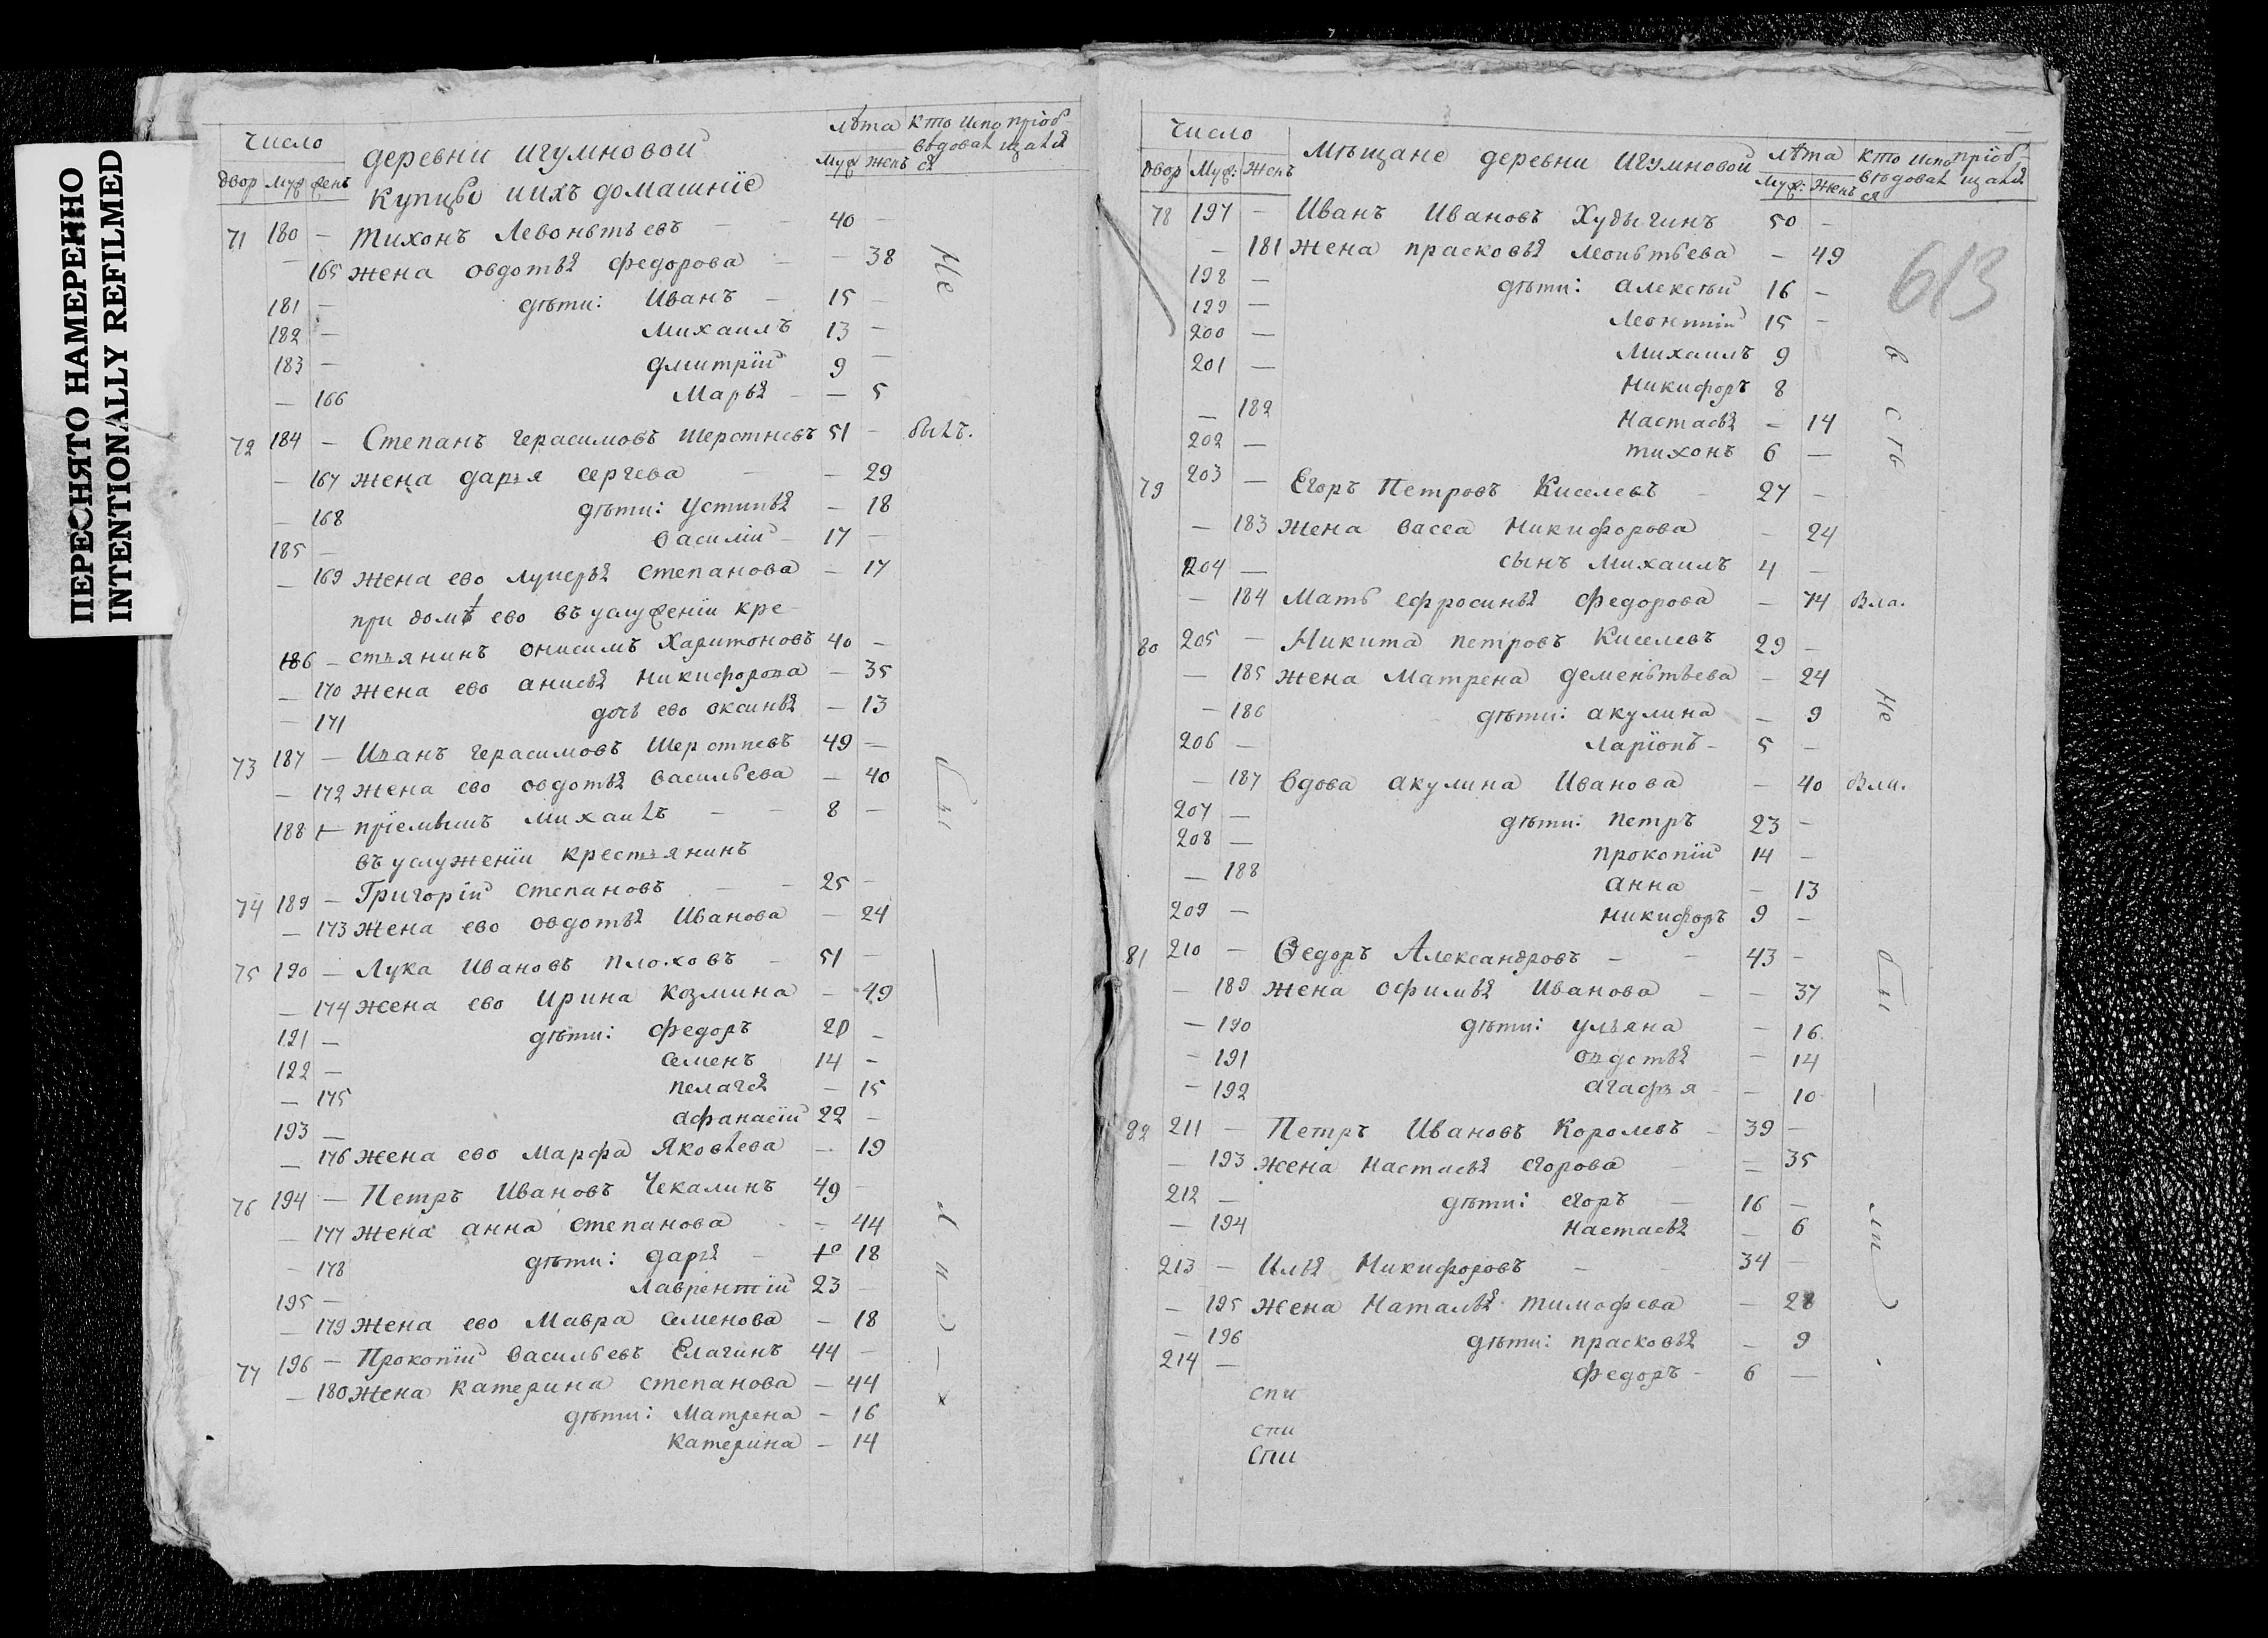 ПЕРЕСНЯТО НАМЕРЕННО
INTENTIONALLY REFILMED
Число
двор Муж женъ
деревни игумновой
купцы иихъ домашніе
лѣта
Муж женъ
кто испо
вѣдовал
ся
пріоб
щался
71 180 — Тихонъ Левонтьевъ — 40 —
— 165 жена овдотья федорова — — 38
181 — дѣти: Иванъ — 15 —
182 — михаилъ 13 —
183 — дмитрій 9 —
— 166 Марья — — 5
72 184 — Степанъ герасимовъ шерстневъ 51 — былъ.
— 167 жена даръя сергева — — 29
— 168 дѣти: Устинья — 18
185 — василій 17 —
— 169 жена ево лукерья степанова — 17
при домѣ ево въ услуженіи кре-
186 — стъянинъ онисимъ Харитоновъ 40 —
— 170 жена ево анисья никифорова — 35
— 171 дочь ево оксинья — 13
73 187 — Иванъ герасимовъ шерстневъ 49 —
— 172 жена ево овдотья васильева — 40
188 — пріемышъ михаилъ — — 8 —
въ услуженіи крестъянинъ
74 189 — Григорій степановъ — — 25 —
— 173 жена ево овдотья Иванова — 24
75 190 — Лука Ивановъ плоховъ — 51 —
— 174 жена ево Ирина козмина — 49
191 — дѣти: федоръ 20 —
192 — семенъ 14 —
— 175 пелагея — 15
193 — афанасій 22 —
— 176 жена ево Марфа Яковлева — 19
76 194 — Петръ Ивановъ Чекалинъ 49 —
— 177 жена анна степанова — 44
— 178 дѣти: дарья — 18
195 — лаврентій 23 —
— 179 жена ево Мавра семенова — 18
77 196 — Прокопій васильевъ Елагинъ 44 —
— 180 жена катерина степанова — 44
дѣти: Матрена — 16
катерина — 14
Не
сп
Число
двор Муж: женъ
Мѣщане деревни Игумновой
лѣта
Муж: женъ
кто испо
вѣдовал
ся
пріоб
щался
613
78 197 — Иванъ Ивановъ Худыгинъ 50 —
— 181 жена прасковья леоньтьева — 49
198 — дѣти: алексѣй 16 —
199 — леонтій 15 —
200 — михаилъ 9
201 — никифоръ 8
— 182 настасья — 14
202 — тихонъ 6 —
79 203 — Егоръ Петровъ Киселевъ — 27 —
— 183 жена васса никифорова — 24
204 — сынъ михаилъ 4 —
— 184 мать ефросинья федорова — 74 была.
80 205 — Никита петровъ Киселевъ 29 —
— 185 жена матрена деменьтьева — 24
— 186 дѣти: акулина — 9
206 — ларіонъ — 5 —
— 187 вдова акулина Иванова — 40 были.
207 — дѣти: петръ 23 —
208 — прокопій 14 —
— 188 анна — 13
209 — никифоръ 9 —
81 210 — Ѳедоръ Александровъ — — 43 —
— 189 жена офимья Иванова — — 37
— 190 дѣти: ульяна — 16
— 191 овдотья — 14
— 192 агафъя — — 10
82 211 — Петръ Ивановъ Королевъ — 39 —
— 193 жена настасья егорова — 35
212 — дѣти: егоръ — 16 —
— 194 настасья — 6
213 — Илья Никифоровъ — 34 —
— 195 жена наталья тимофева — 28
— 196 дѣти: прасковья — 9
214 — федоръ — 6 —
спи
спи
Спи
в
сѣ
не